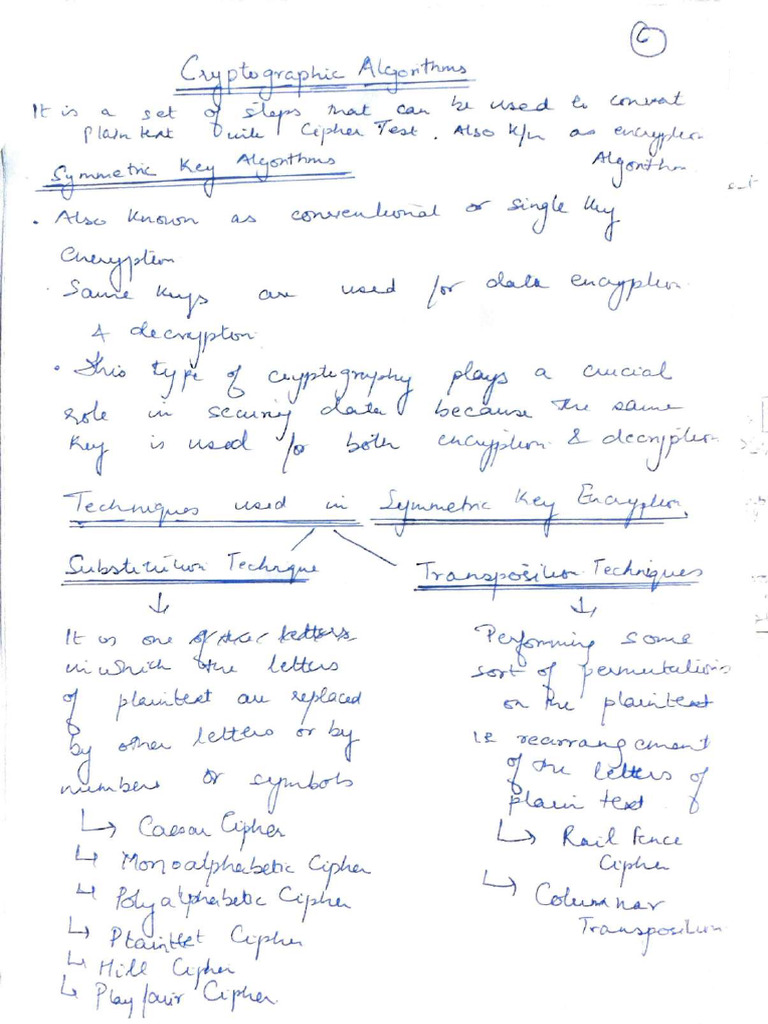 6
Cryptographic Algorithms
It is a set of steps that can be used to convert
Plain text into Cipher Text. Also K/n as encryption
Algorithm
Symmetric Key Algorithms
• Also known as conventional or single key
encryption
• Same keys are used for data encryption
& decryption
• This type of cryptography plays a crucial
role in securing data because the same
key is used for both encryption & decryption
Techniques used in Symmetric Key Encryption
Substitution Technique
↓
It is one of the letters
in which the letters
of plaintext are replaced
by other letters or by
numbers or symbols
↳ Caesar Cipher
↳ Monoalphabetic Cipher
↳ Polyalphabetic Cipher
↳ Cipher
↳ Hill Cipher
↳ Playfair Cipher
Transposition Techniques
↓
Performing some
sort of permutations
on the plaintext
i.e rearrangement
of the letters of
plain text.
↳ Rail Fence
Cipher
↳ Columnar
Transposition